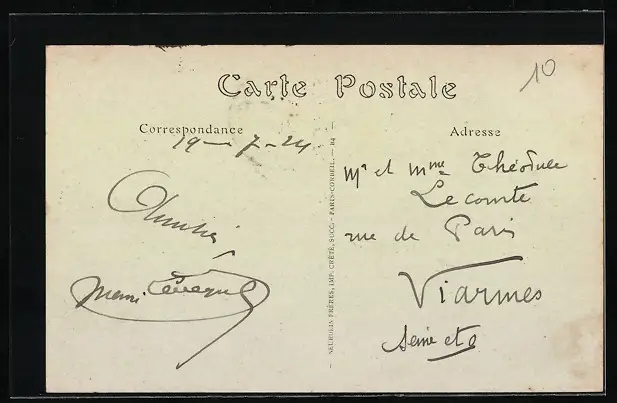 10
Carte Postale
Correspondance
19-7-24
Amitié
Adresse
Mr et Mme Théodule
Lecomte
rue de Paris
Viarmes
Seine et O
NEURDEIN FRÈRES, IMP. CRÉTÉ, SUCC. - PARIS-CORBEIL. — 84